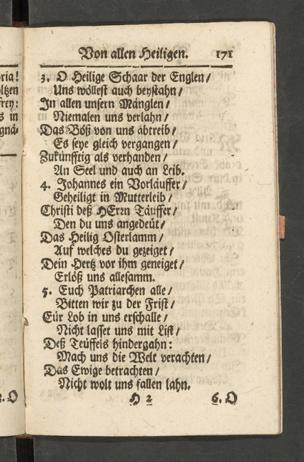 Von allen Heiligen. 171
3. O Heilige Schaar der Englen/
Uns wöllest auch beystahn/
In allen unsern Mänglen/
Niemalen uns verlahn/
Das Böß von uns abtreib/
Es seye gleich vergangen/
Zukünfftig als verhanden/
An Seel und auch an Leib.
4. Johannes ein Vorläuffer/
Geheiligt in Mutterleib/
Christi deß HErrn Täuffer/
Den du uns angedeüt/
Das Heilig Osterlamm/
Auf welches du gezeiget/
Dein Hertz vor ihm geneiget/
Erlöß uns allesamm.
5. Euch Patriarchen alle/
Bitten wir zu der Frist/
Eür Lob in uns erschalle/
Nicht lasset uns mit List/
Deß Teüffels hindergahn:
Mach uns die Welt verachten/
Das Ewige betrachten/
Nicht wolt uns fallen lahn.
H 2 6. O